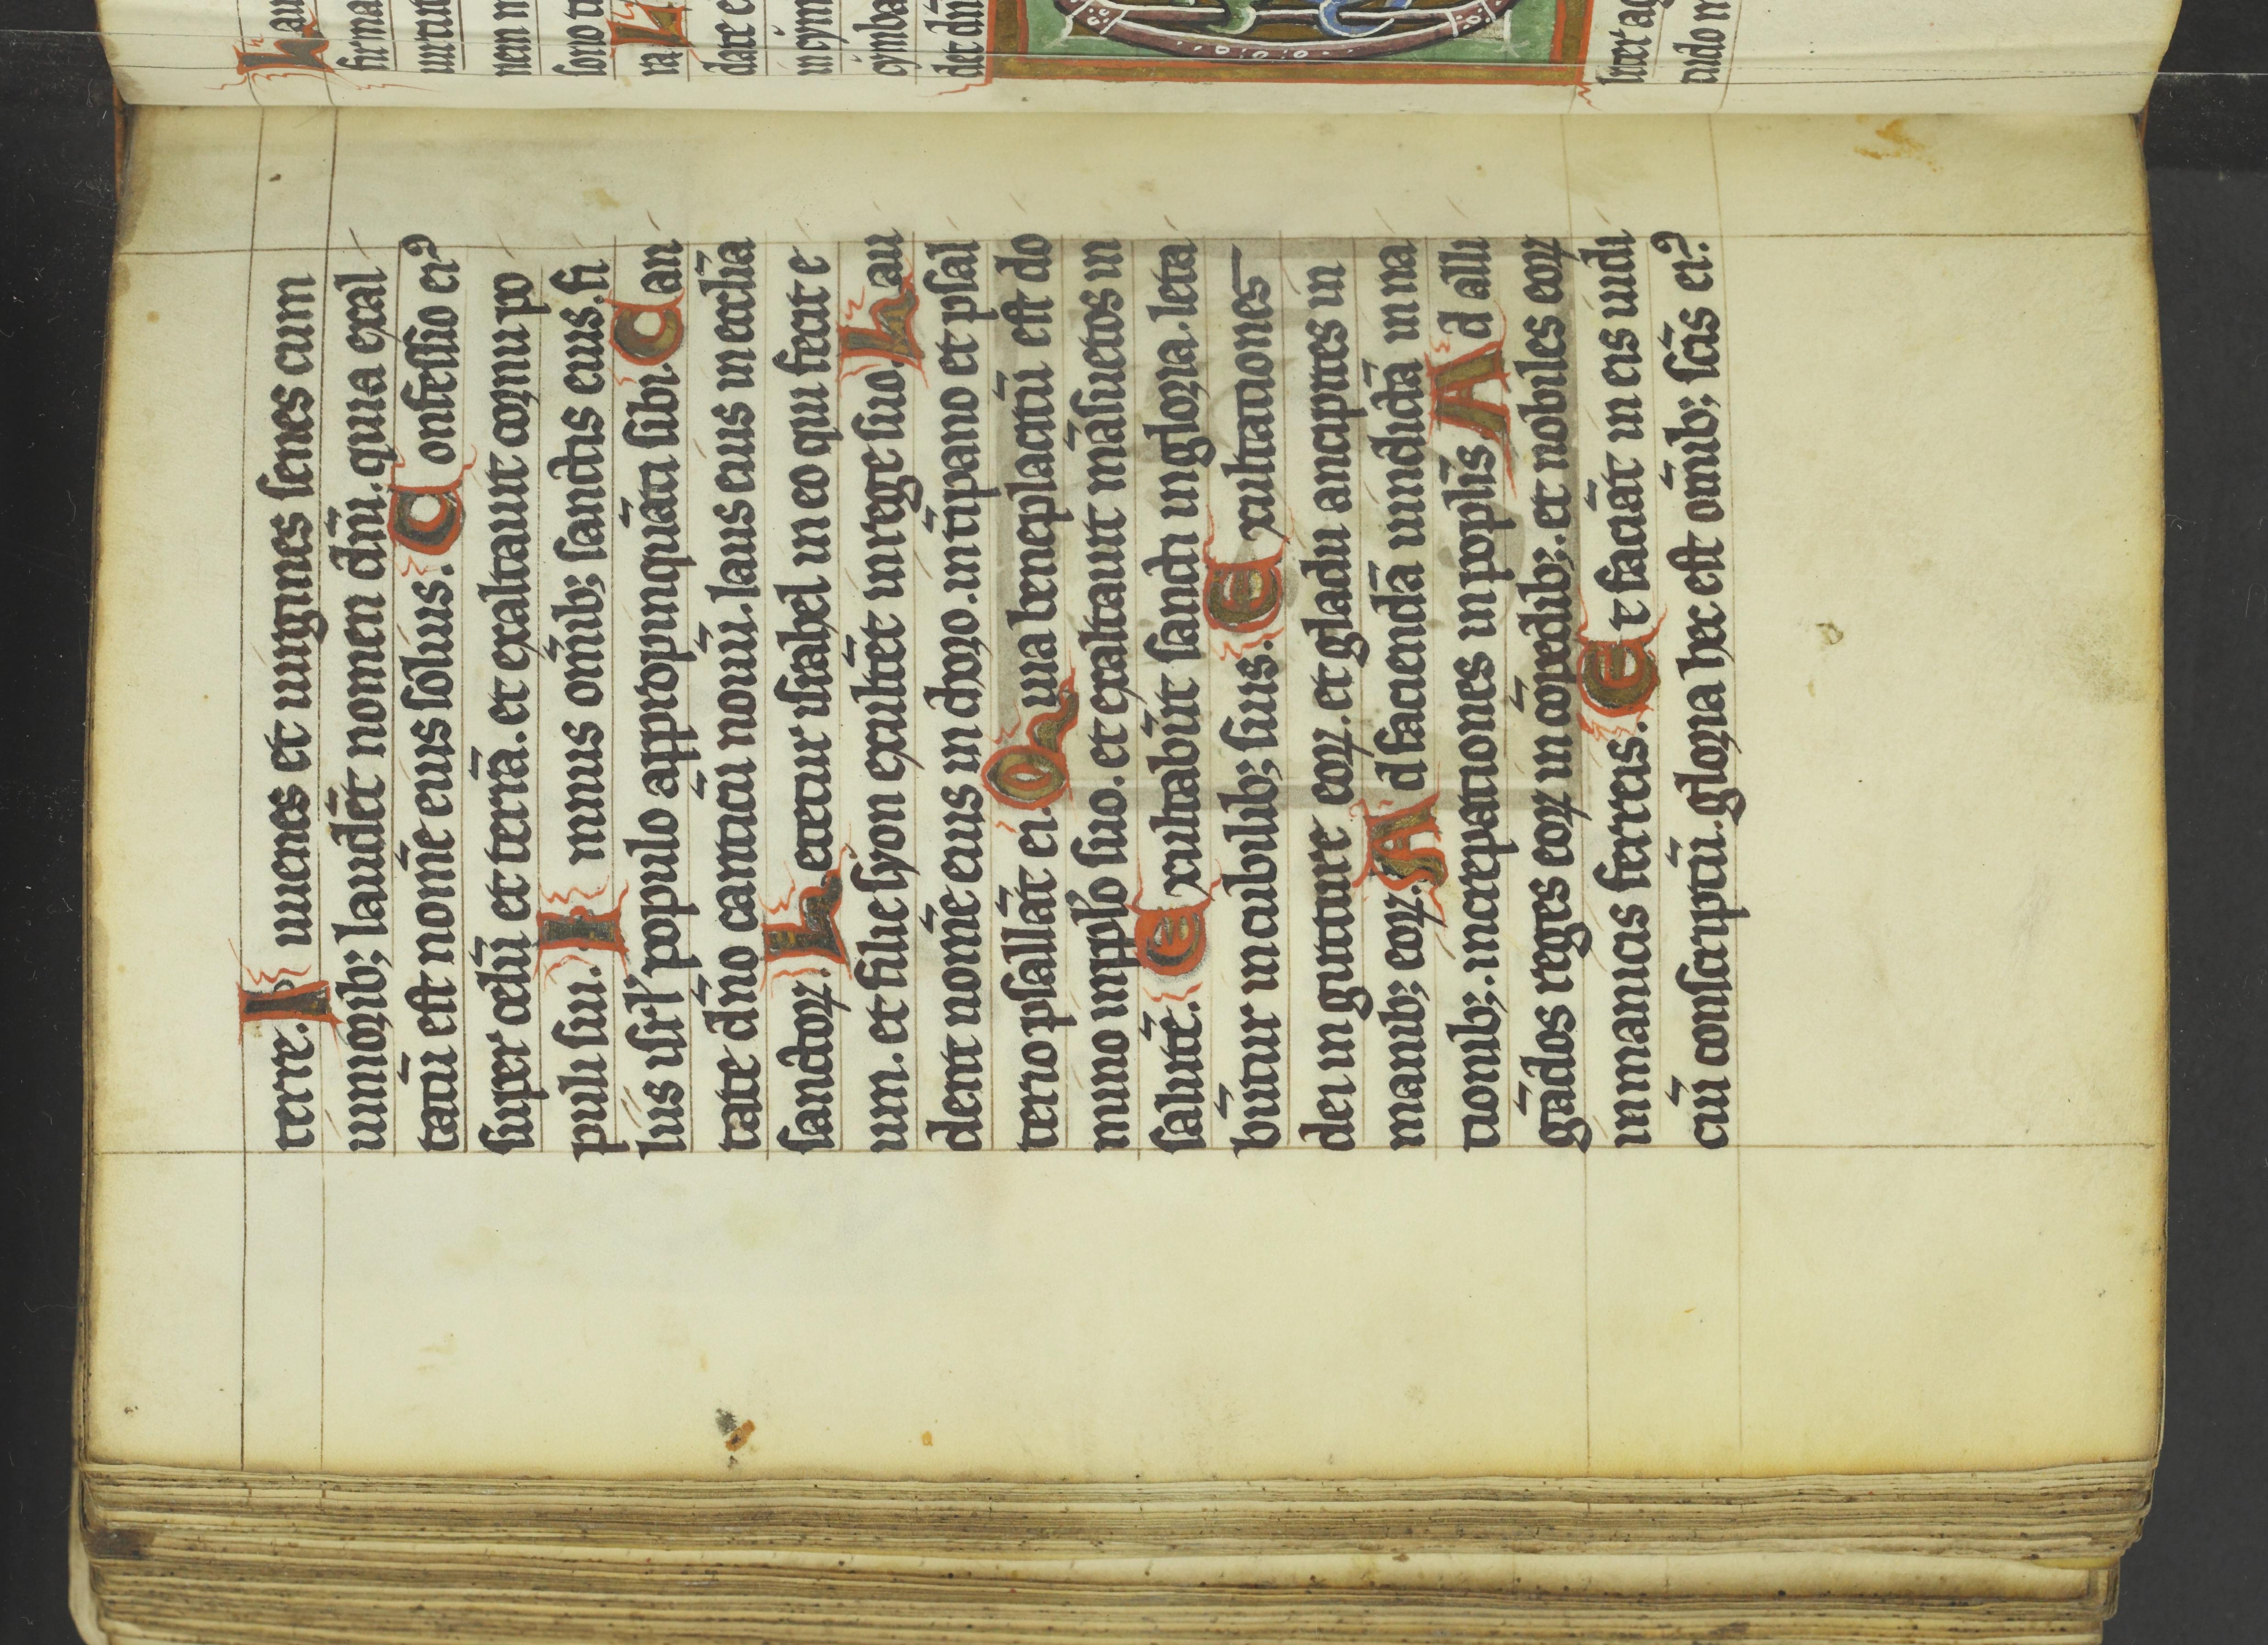 terre. Iuuenes et uirgines senes cum
iuniorib; laudēt nomen dn̄i. quia exal
tatū est nom̄e eius solius. Confessio ei⁹
super celū et terrā. et exaltauit cornu po
puli sui. Hymnus om̄ib; sanctis eius. fi
liis isrl' populo appropinquāti sibi. Can
tate dn̄o canticū nouū. laus eius in eccl̄ia
sanctoꝝ. Letetur israhel in eo qui fecit e
um. et filie syon exultēt in rege suo. Lau
dent nom̄e eius in choro. in tīpano et psal
terio psallāt ei. Quia beneplacitū est do
mino in ppl'o suo. et exaltauit māsuetos in
salutē. Exultabūt sancti in gloria. leta
būtur in cubilib; suis. Exultationes
dei in gutture eoꝝ. et gladii ancipites in
manib; eoꝝ. Ad faciendā uindictā in na
tionib;. increpationes in popl̄is. Ad alli
gādos reges eoꝝ in cōpedib;. et nobiles eoꝝ
in manicis ferreis. Et faciāt in eis iudi
ciū conscriptū. gloria hec est om̄ib; scīs ei⁹.
Lau
firma
uirtut
nem m
sono tu
ra. L
date e
in cym
cymba
det dn̄